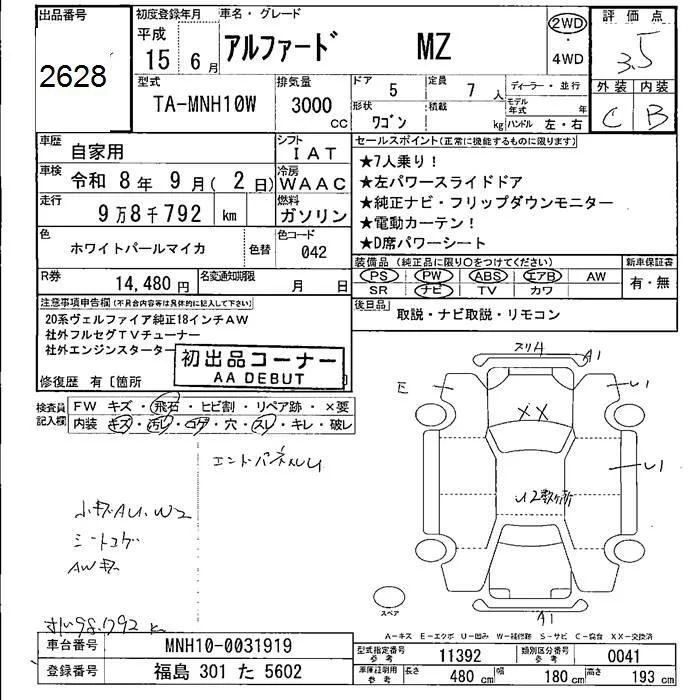 出品番号
2628
初度登録年月
平成
15年 6月
車名・グレード
アルファード MZ
2WD
・
4WD
評価点
3.5
外装 内装
C B
型式
TA-MNH10W
排気量
3000
CC
ドア 5
定員 7人
ディーラー・並行
形状 ワゴン
積載 kg
モデル年式 年
ハンドル 左・右
車歴 自家用
シフト IAT
車検 令和 8年 9月( 2日)
冷房 WAAC
走行 9万8千792 km
燃料 ガソリン
色 ホワイトパールマイカ
色替
色コード 042
R券 14,480円
名変通知期限 月 日
セールスポイント(正常に機能するものに限ります)
★7人乗り!
★左パワースライドドア
★純正ナビ・フリップダウンモニター
★電動カーテン!
★D席パワーシート
装備品(純正品に限り○をつけてください)
PS PW ABS エアB AW
SR ナビ TV カワ
新車保証書
有・無
後日品 取説・ナビ取説・リモコン
注意事項申告欄(不具合内容等は具体的に記入して下さい)
20系ヴェルファイア純正18インチAW
社外フルセグTVチューナー
社外エンジンスターター
初出品コーナー
AA DEBUT
修復歴 有〔箇所
検査員記入欄
FW キズ・飛石・ヒビ割・リペア跡・×要
内装 キズ・汚レ・コゲ・穴・スレ・キレ・破レ
エンドパネルU
小キズAU、W2
シートコゲ
AWキズ
98,792 k
スリ4
A1
E
U1
XX
U1
U2数ヶ所
A1
スペア
A-キズ E-エクボ U-凹み W-補修跡 S-サビ C-腐食 XX-交換済
車台番号 MNH10-0031919
型式指定番号 参考 11392
類別区分番号 参考 0041
登録番号 福島 301 た 5602
車庫証明用 参考 長さ 480 cm 幅 180 cm 高さ 193 cm